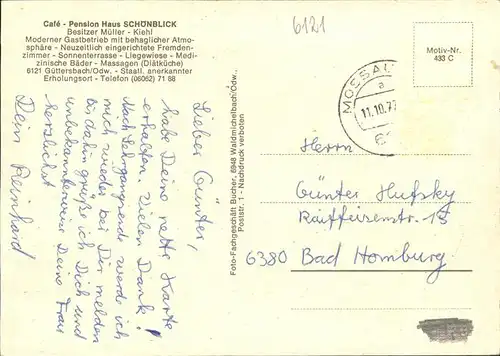 Café - Pension Haus SCHÖNBLICK
Besitzer Müller - Kiehl
Moderner Gastbetrieb mit behaglicher Atmo-
sphäre - Neuzeitlich eingerichtete Fremden-
zimmer - Sonnenterrasse - Liegewiese - Medi-
zinische Bäder - Massagen (Diätküche)
6121 Güttersbach/Odw. - Staatl. anerkannter
Erholungsort - Telefon (06062) 71 88
6121
Motiv-Nr.
433 C
MOSSAU
a
11.10.77
61
Lieber Günter,
habe Deine nette Karte
erhalten. Vielen Dank!
Nach Lehrgangsende werde ich
mich wieder bei Dir melden
bis dahin grüße ich Dich und
unbekannterweise Deine Frau
herzlichst
Dein Reinhard
Foto-Fachgeschäft Bucher, 6948 Waldmichelbach/Odw.,
Poststr. 1 - Nachdruck verboten
Herrn
Günter Hufsky
Raiffeisenstr. 15
6380 Bad Homburg